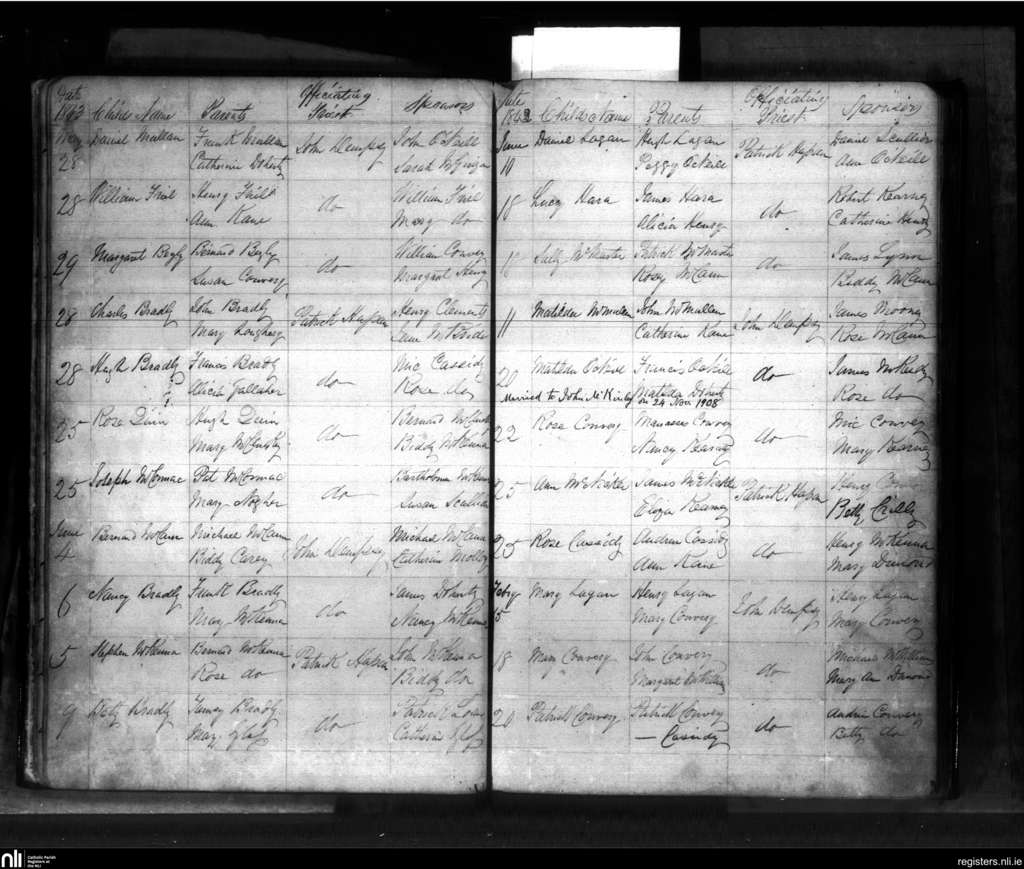 Date Officiating
1842 Child's Name Parents Priest Sponsors
May Daniel Mullan Frank Mullan John Dempsey John O'Neill
28 Catherine Doherty Sarah
28 William Friel Henry Friel do William Friel
Ann Kane Mary do
29 Margaret Begly Bernard Begly do William Convery
Susan Convery Margaret Henry
28 Charles Bradly John Bradly Patrick Henry Clements
Mary Loughery
28 Hugh Bradly Francis Bradly do Mic Cassidy
Alicia Gallaher Rose do
25 Rose Quin Hugh Quin do Bernard
Mary Biddy McKenna
25 Joseph McCormac Pat McCormac do
Mary Susan Scullion
June Bernard McCann Michael McCann John Dempsey Michael McCann
4 Biddy Carey Catherine
6 Nancy Bradly Frank Bradly do James Doherty
Mary McKenna Nancy McKenna
5 Stephen McKenna Bernard McKenna Patrick John McKenna
Rose do Biddy do
9 Betty Bradly James Bradly do Patrick
Mary Catherine
Date Officiating
1842 Child's Name Parents Priest Sponsors
June Daniel Lagan Hugh Lagan Patrick Daniel Scullion
10 Peggy O'Neill Ann O'Neill
18 Lucy Hara James Hara do Robert Kearney
Alicia Henry Catherine Henry
18 Sally McMaster Patrick McMaster do James Lynn
Rosy McCann Biddy McCann
11 Matilda McMullen John McMullen John Dempsey James Mooney
Catherine Kane Rose McCann
20 Matilda O'Neill Francis O'Neill do James
Married to John McKinley Matilda Doherty Rose do
on 24 Nov 1908
22 Rose Convery Manasses Convery do Mic Convery
Nancy Mary Kearney
25 Ann McNickle James McNickle Patrick Henry
Eliza Kearney Betty
25 Rose Cassidy Andrew Cassidy do Henry McKenna
Ann Kane Mary
Feby Mary Lagan Henry Lagan John Dempsey Henry Lagan
15 Mary Convery Mary Convery
18 Mary Convery John Convery do Michael McWilliam
Margaret Mary An
20 Patrick Convery Patrick Convery do Andrew Convery
— Cassidy Betty do
nli Catholic Parish
Registers at
the NLI
registers.nli.ie